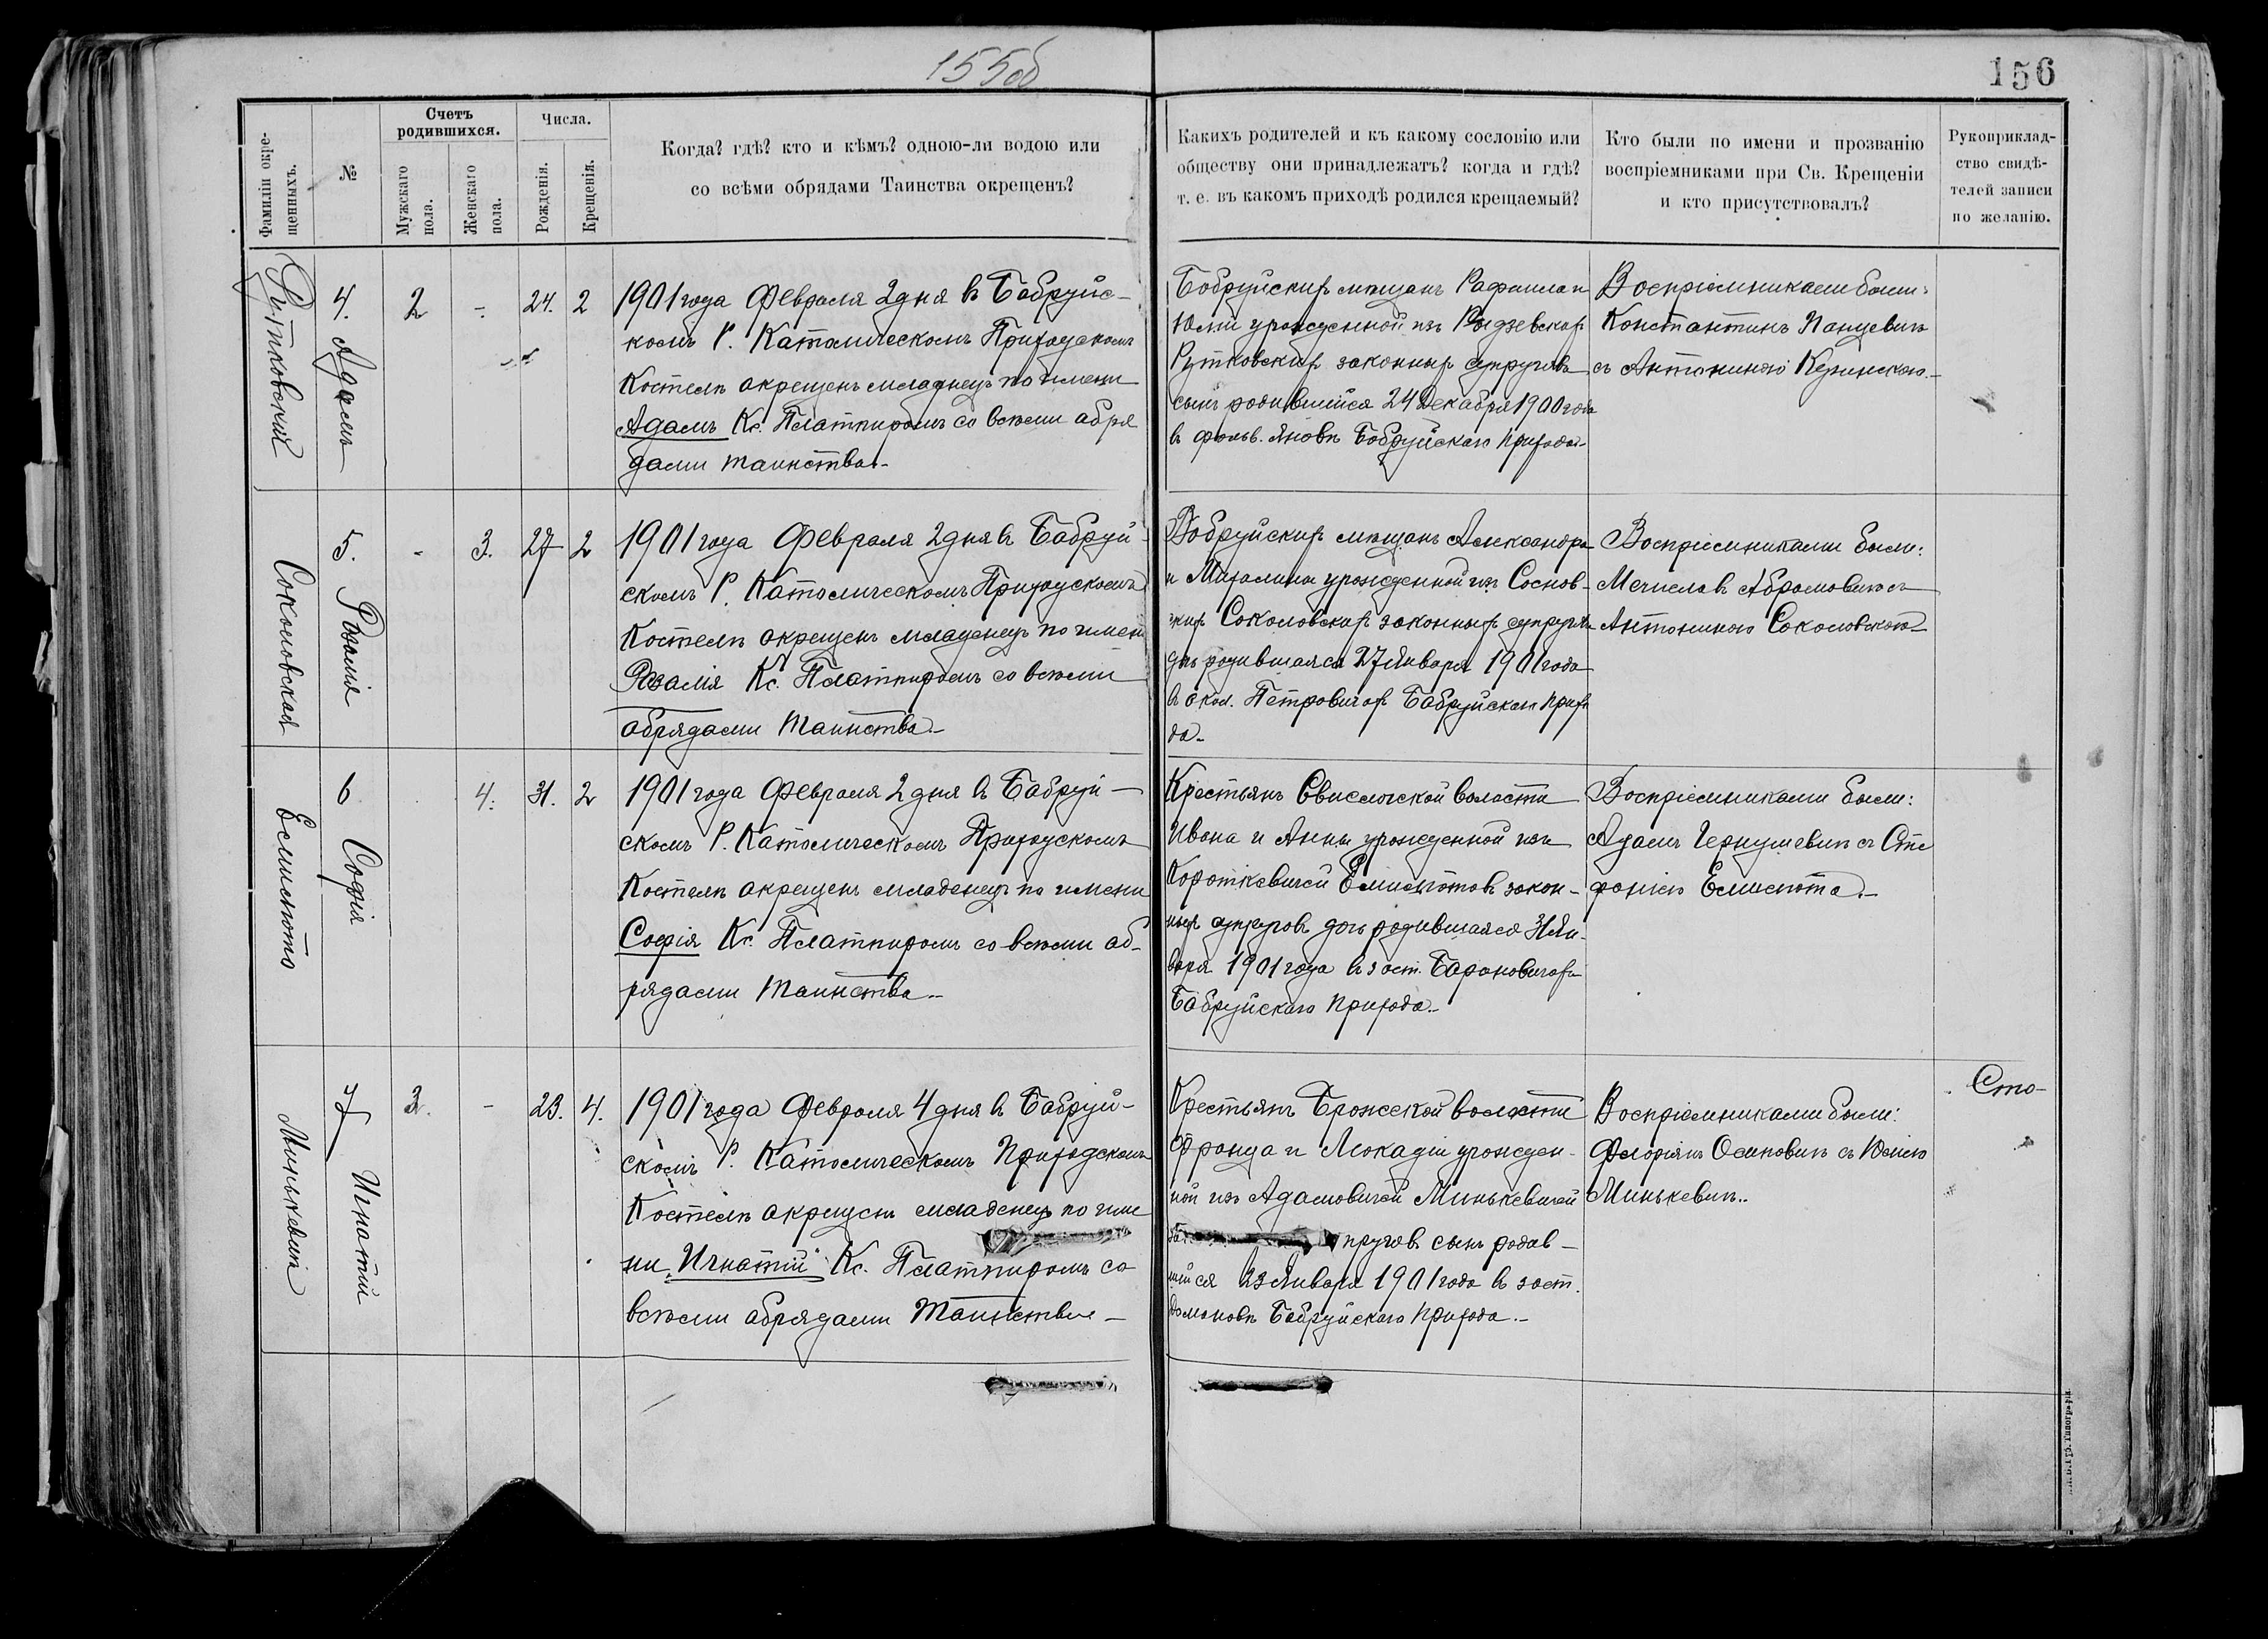 155об
156
Фамиліи окре-
щенныхъ.
№
Счетъ
родившихся.
Мужскаго
пола.
Женскаго
пола.
Числа.
Рожденія.
Крещенія.
Когда? гдѣ? кто и кѣмъ? одною-ли водою или
со всѣми обрядами Таинства окрещенъ?
Какихъ родителей и къ какому сословію или
обществу они принадлежатъ? когда и гдѣ?
т. е. въ какомъ приходѣ родился крещаемый?
Кто были по имени и прозванію
воспріемниками при Св. Крещеніи
и кто присутствовалъ?
Рукоприклад-
ство свидѣ-
телей записи
по желанію.
Рутковскій
4. Адамъ
2
-
24.
2
1901 года Февраля 2 дня в Бабруйс-
комъ Р. Католическомъ Приходскомъ
Костелѣ окрещенъ младнецъ по имени
Адамъ Кс. Платпиромъ со всѣми абря
дами таинства.-
Бобруйских мѣщанъ Рафаила и
Юліи урожденной изъ
Рутковских законных супругов
сынъ родившійся 24 Декабря 1900 года
в фольв. Яновѣ Бобруйскаго прихода.-
Воспріемниками были:
Константинъ Панцевичъ
съ Антониною
Соколовская
5. Розалія
-
3.
27
2
1901 года Февраля 2 дня в Бабруй-
скомъ Р. Католическомъ Приходскомъ
Костелѣ окрещенъ младенецъ по имени
Розалія Кс. Платпиромъ со всѣми
абрядами Таинства.-
Бобруйских мѣщанъ Александра
и Михалины урожденной изъ Соснов-
ских Соколовских законных супругов
дчь родившаяся 27 Января 1901 года
в окол. Петровичах Бабруйскаго прихо
да.-
Воспріемниками были:
Мечиславъ Абрамовичъ съ
Антониною Соколовскою
Есмиснтото
6 Софія
4.
31.
2
1901 года Февраля 2 дня в Бабруй-
скомъ Р. Католическомъ Приходскомъ
Костелѣ окрещенъ младенецъ по имени
Софія Кс. Платпиромъ со всѣми аб-
рядами Таинства.-
Крестьянъ Свислочской волости
Ивана и Анны урожденной изъ
Короткевичей закон-
ных супругов дочь родившаяся 31 Ян-
варя 1901 года в заст. Барановичах
Бабруйскаго прихода.-
Воспріемниками были:
Адамъ Чернушевичъ съ Сте
фаніею
Минькевичъ
7 Игнатій
3.
-
23.
4.
1901 года Февраля 4 дня в Бабруй-
скомъ Р. Католическомъ Приходскомъ
Костелѣ окрещенъ младенецъ по име
ни „Игнатій" Кс. Платпиромъ со
всѣми абрядами Таинства -
Крестьянъ Брожской волости
Франца и Люкадіи урожден-
ной изъ Адамовичей Минькевичей
пругов сынъ родив-
шійся 23 Января 1901 года в заст.
Домановѣ Бабруйскаго прихода.-
Воспріемниками были:
Флоріянъ Осиповичъ съ
Минькевичъ..
Сто-